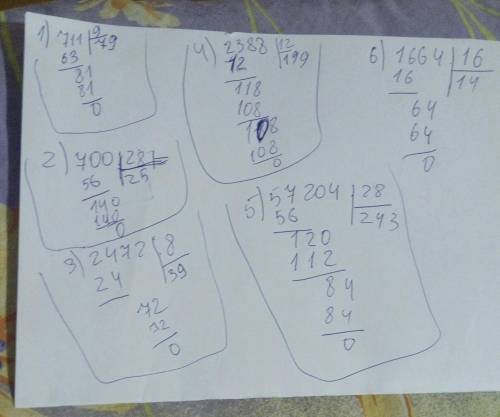 1) 711 | 9
63 79
81
81
0
2) 700 | 28
56 25
140
140
0
3) 2472 | 8
24 39
72
72
0
4) 2388 | 12
12 199
118
108
108
108
0
5) 57204 | 28
56 243
120
112
84
84
0
6) 1664 | 16
16 14
64
64
0